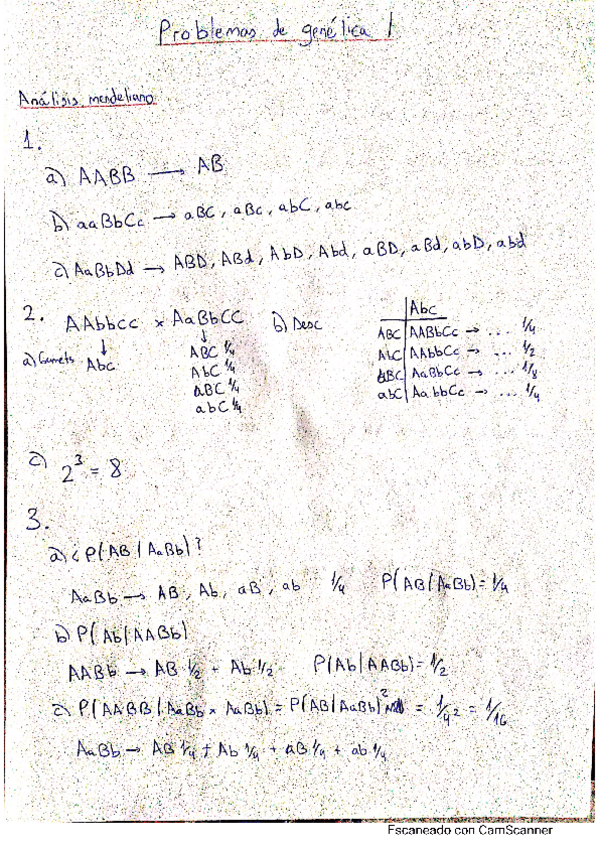 Problemas de genética 1
Análisis mendeliano
1.
a) AABB → AB
b) aaBbCc → aBC, aBc, abC, abc
c) AaBbDd → ABD, ABd, AbD, Abd, aBD, aBd, abD, abd
2. AAbbcc x AaBbCC
a) Gamets Abc
ABC 1/4
AbC 1/4
aBC 1/4
abC 1/4
b) Desc
Abc
ABC AABbCc → ... 1/4
AbC AAbbCc → ... 1/2
aBC AaBbCc → ... 1/8
abC AabbCc → ... 1/4
c) 2³ = 8
3.
a) ¿P(AB/AaBb)?
AaBb → AB, Ab, aB, ab 1/4 P(AB/AaBb) = 1/4
b) P(Ab/AABb)
AABb → AB 1/2 + Ab 1/2 P(Ab/AABb) = 1/2
c) P(AABB/AaBb x AaBb) = P(AB/AaBb)² = 1/4² = 1/16
AaBb → AB 1/4 + Ab 1/4 + aB 1/4 + ab 1/4
Escaneado con CamScanner